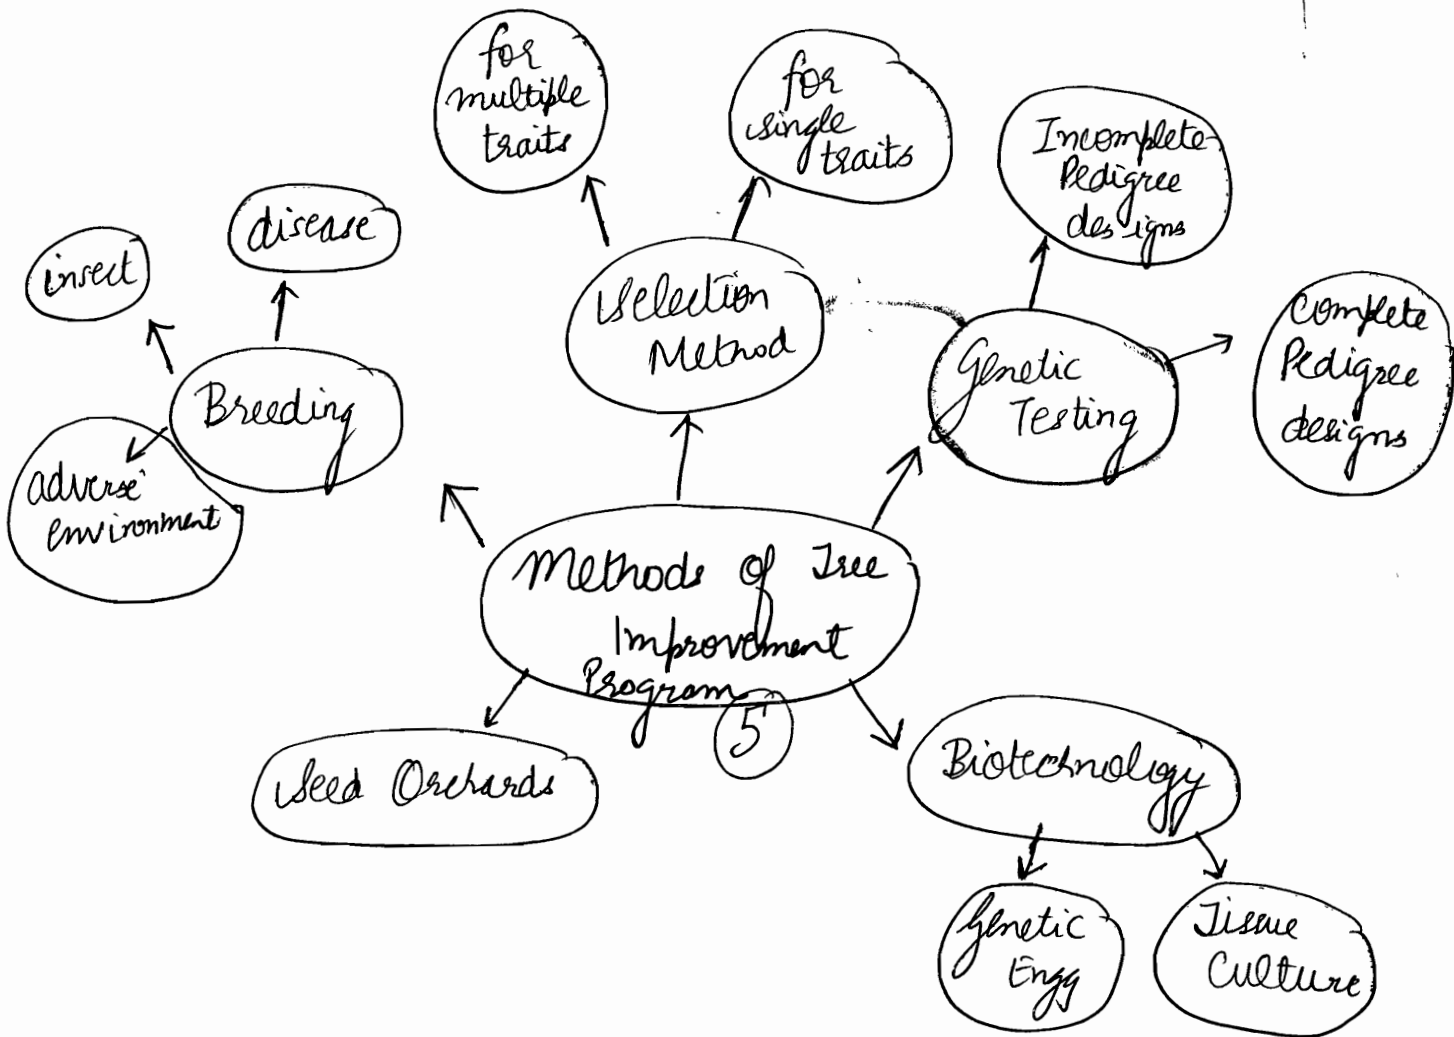 for
multiple
traits
for
single
traits
Incomplete
Pedigree
designs
disease
insect
Selection
Method
Complete
Pedigree
designs
Genetic
Testing
Breeding
adverse
environment
Methods of Tree
Improvement
Program
5
Seed Orchards
Biotechnology
Genetic
Engg
Tissue
Culture